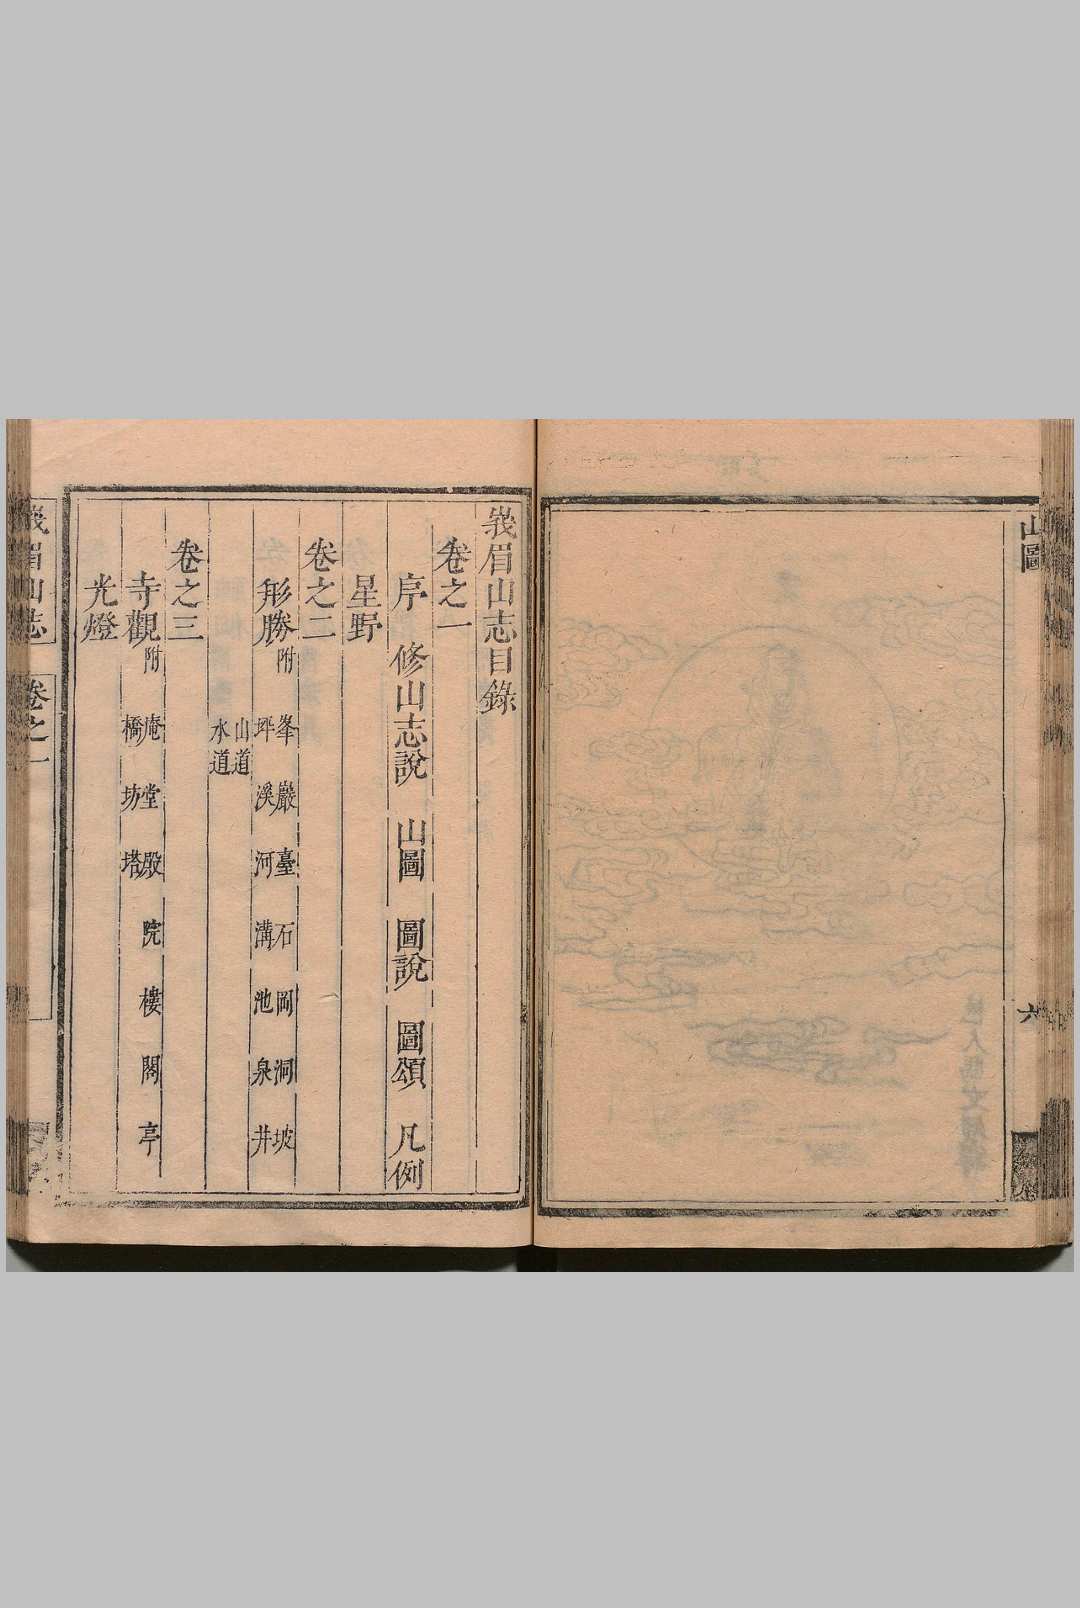 山圖
六
峩眉山志目錄
卷之一
序 修山志說 山圖 圖說 圖頌 凡例
星野
卷之二
形勝附 峯 巖 臺 石 岡 洞 坡
坪 溪 河 溝 池 泉 井
山道
水道
卷之三
寺觀附 庵 堂 殿 院 樓 閣 亭
橋 坊 塔
光燈
峩眉山志 卷之一